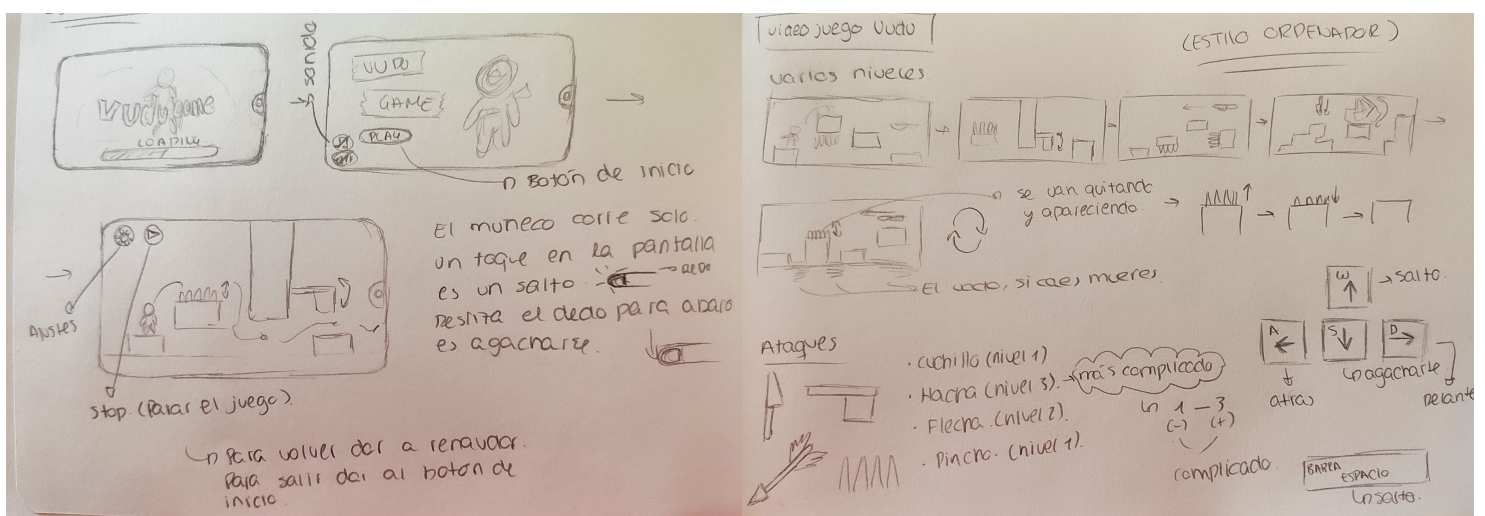 sonido
VUDU game
LOADING
VUDO
GAME
PLAY
Botón de inicio
El muñeco corre solo.
un toque en la pantalla
es un salto.
DEDO
Desliza el dedo para abajo
es agacharse.
Ajustes
Stop. (Parar el juego).
Para volver dar a renaudar.
Para salir dar al botón de
inicio.
video juego Vudu
(ESTILO ORDENADOR)
varios niveles
se van quitando
y apareciendo.
El vacío, si caes mueres.
W
salto.
A
S
D
agacharse
atrás
Delante
Ataques
· Cuchillo (nivel 1)
· Hacha (nivel 3).
más complicado
· Flecha. (nivel 2).
· Pincho. (nivel 1).
1 - 3
(-) (+)
complicado.
BARRA
ESPACIO
salto.